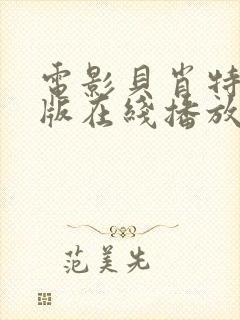 電影貝肖特
版在綫播放
范美先